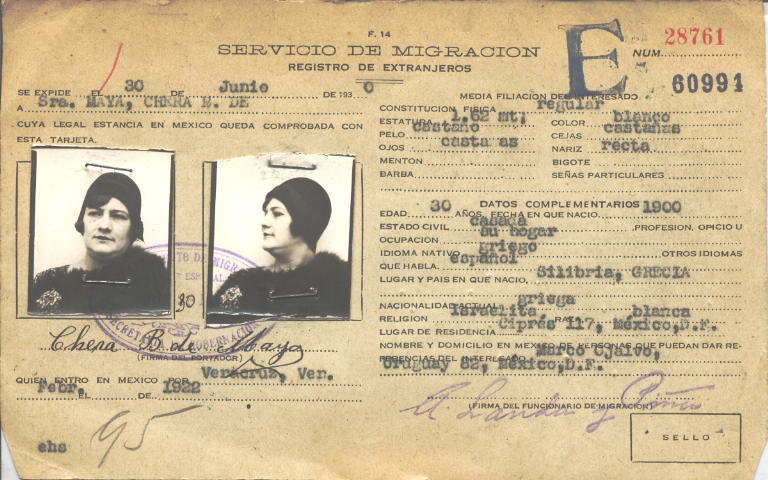 F. 14
SERVICIO DE MIGRACION
REGISTRO DE EXTRANJEROS
E
NUM. 28761
60991
SE EXPIDE EL 30 DE Junio DE 1930
A Sra. MAYA, CHERA B. DE
CUYA LEGAL ESTANCIA EN MEXICO QUEDA COMPROBADA CON
ESTA TARJETA.
Chera B. de Maya
(FIRMA DEL PORTADOR)
QUIEN ENTRO EN MEXICO POR Veracruz, Ver.
EL Febr. DE 1922
ehs
95
MEDIA FILIACION DEL INTERESADO
CONSTITUCION FISICA regular
ESTATURA 1.62 mt. COLOR blanco
PELO castaño CEJAS castañas
OJOS NARIZ recta
MENTON BIGOTE
BARBA SEÑAS PARTICULARES
DATOS COMPLEMENTARIOS
EDAD 30 AÑOS, FECHA EN QUE NACIO 1900
ESTADO CIVIL casada PROFESION, OPICIO U
OCUPACION su hogar
IDIOMA NATIVO griego OTROS IDIOMAS
QUE HABLA español
LUGAR Y PAIS EN QUE NACIO, Silibria, GRECIA
NACIONALIDAD ACTUAL griega
RELIGION israelita, RAZA blanca
LUGAR DE RESIDENCIA Ciprés 117, México,D.F.
NOMBRE Y DOMICILIO EN MEXICO DE PERSONAS QUE PUEDAN DAR RE-
FERENCIAS DEL INTERESADO Marco Ojalvo,
Uruguay 82, México,D.F.
(FIRMA DEL FUNCIONARIO DE MIGRACION)
SELLO